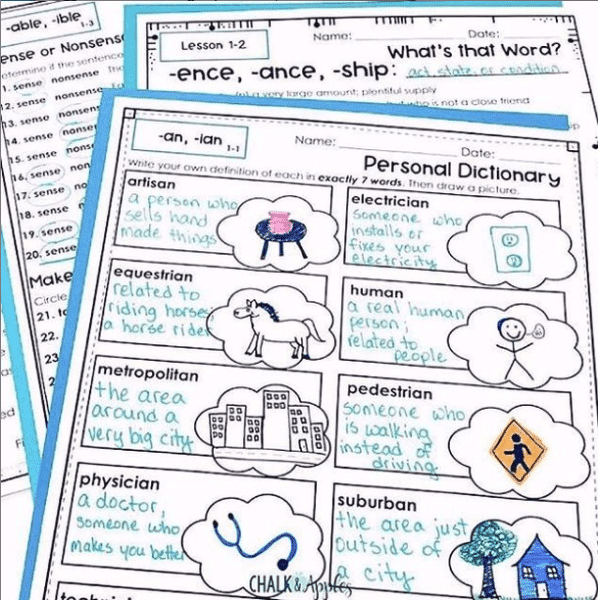 -able, -ible
1-3
ense or Nonsens
etermine if the sentence
1. sense nonsense The
12. sense nonsense
13. sense nonsen
14. sense nonsen
15. sense nons
16. sense non
17. sense no
18. sense
19. sense
20. sense
Make
Circle
21. to
22.
23
Lesson 1-2
Name:
Date:
What's that Word?
-ence, -ance, -ship: act, state, or condition
a very large amount; plentiful supply
who is not a close friend
-an, -ian
1-1
Name:
Date:
Personal Dictionary
Write your own definition of each in exactly 7 words. Then draw a picture.
artisan
a person who
sells hand
made things
electrician
someone who
installs or
fixes your
electricity
equestrian
related to
riding horses
a horse rider
human
a real human
person;
related to
people
metropolitan
the area
around a
very big city
pedestrian
someone who
is walking
instead of
driving
physician
a doctor,
someone who
makes you better
suburban
the area just
outside of
a city
CHALK & Apples